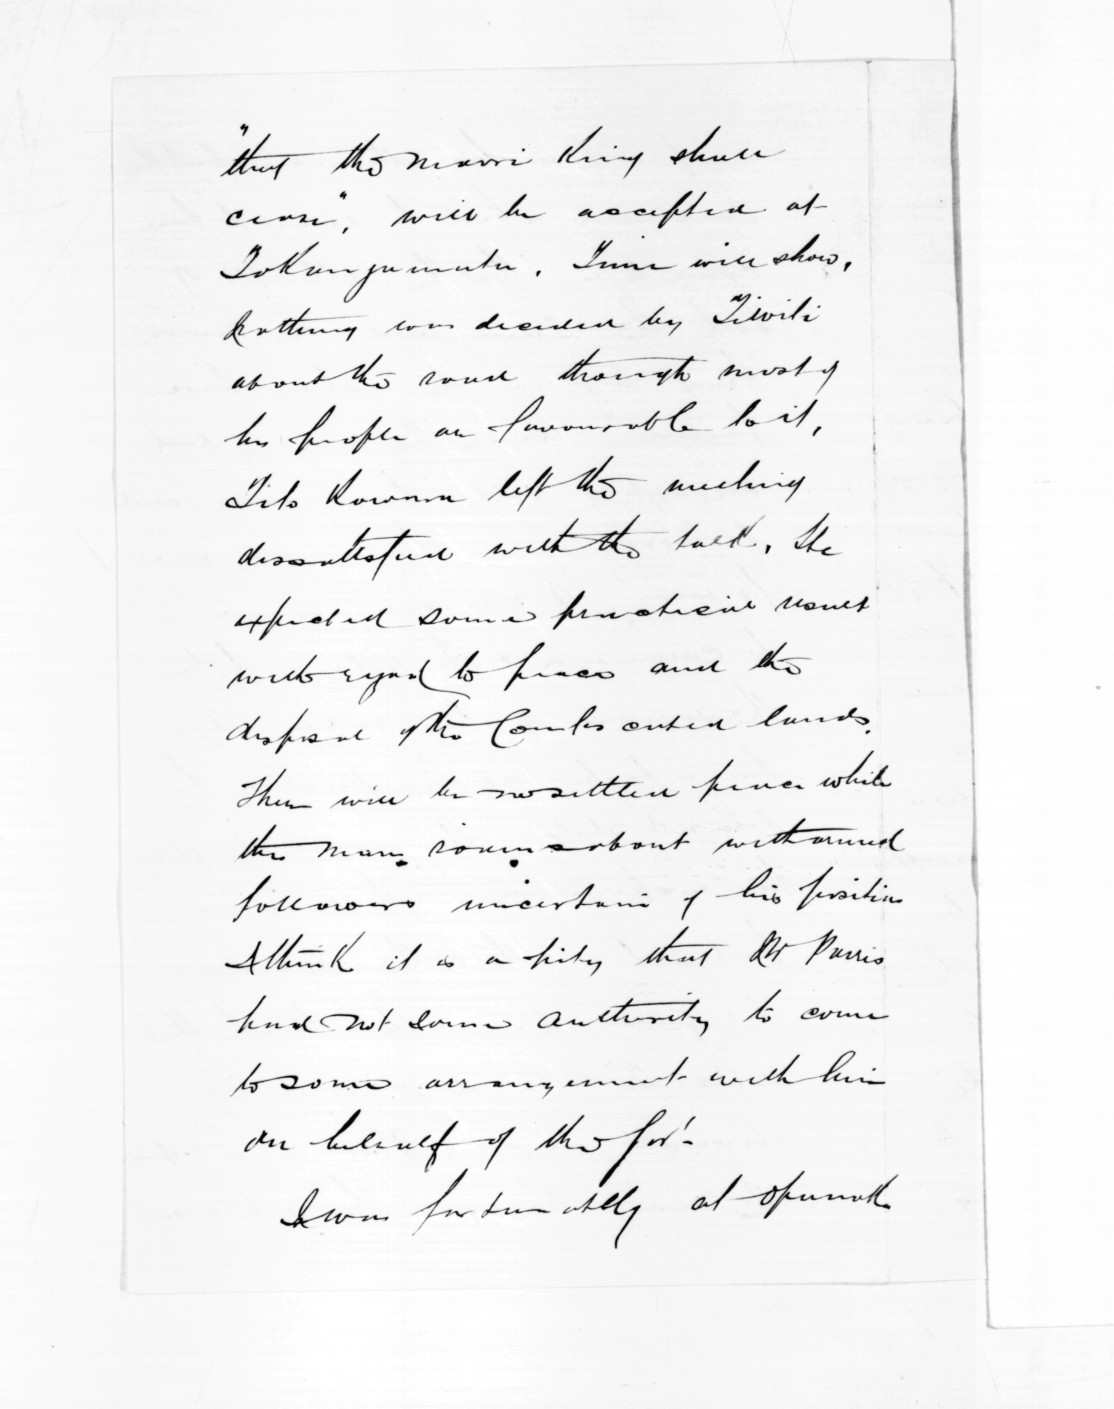 "that the Maori King shall
cease", will be accepted at
Tokangamutu. Time will show,
Nothing was decided by Tiwiti
about the road though most of
his people are favourable to it,
Tito Kowaru left the meeting
dissatisfied with the talk. He
expected some practical result
with regard to peace and the
disposal of the Confiscated lands.
There will be no settled peace while
this man roams about with armed
followers uncertain of his position
I think it is a pity that Mr Parris
had not some authority to come
to some arrangement with him
on behalf of the Gov't
I was fortunately at Opunake